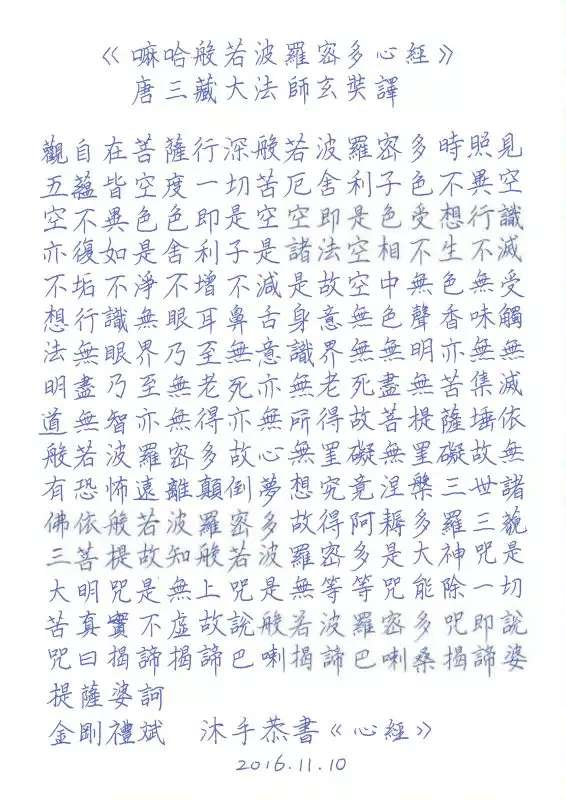 《嘛哈般若波羅密多心經》
唐三藏大法師玄奘譯
觀自在菩薩行深般若波羅密多時照見
五蘊皆空度一切苦厄舍利子色不異空
空不異色色即是空空即是色受想行識
亦復如是舍利子是諸法空相不生不滅
不垢不淨不增不減是故空中無色無受
想行識無眼耳鼻舌身意無色聲香味觸
法無眼界乃至無意識界無無明亦無無
明盡乃至無老死亦無老死盡無苦集滅
道無智亦無得亦無所得故菩提薩埵依
般若波羅密多故心無罣礙無罣礙故無
有恐怖遠離顛倒夢想究竟涅槃三世諸
佛依般若波羅密多故得阿耨多羅三藐
三菩提故知般若波羅密多是大神咒是
大明咒是無上咒是無等等咒能除一切
苦真實不虛故說般若波羅密多咒即說
咒曰揭諦揭諦巴喇揭諦巴喇桑揭諦婆
提薩婆訶
金剛禮斌　沐手恭書《心經》
2016.11.10